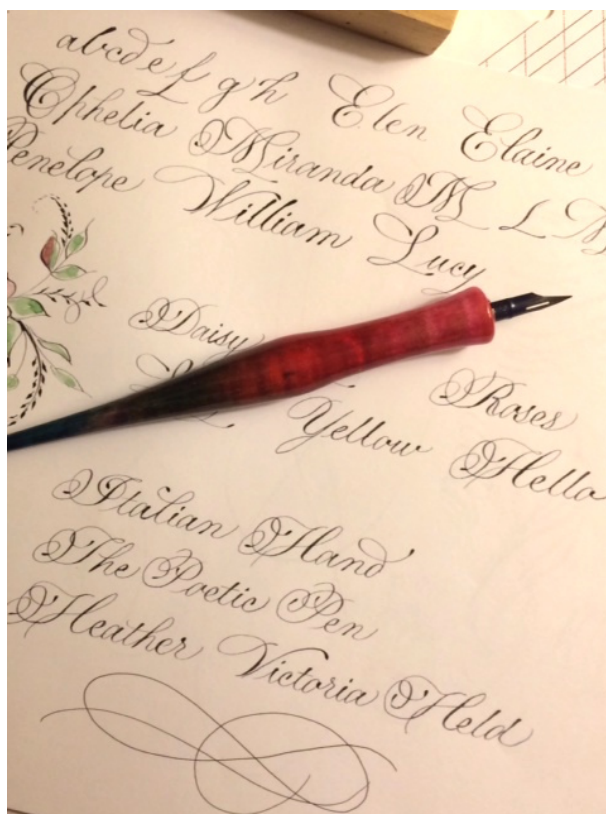 abcdefgh Elen Elaine
Ophelia Miranda M L M
Penelope William Lucy
Daisy
Roses
Yellow Hello
Italian Hand
The Poetic Pen
Heather Victoria Held